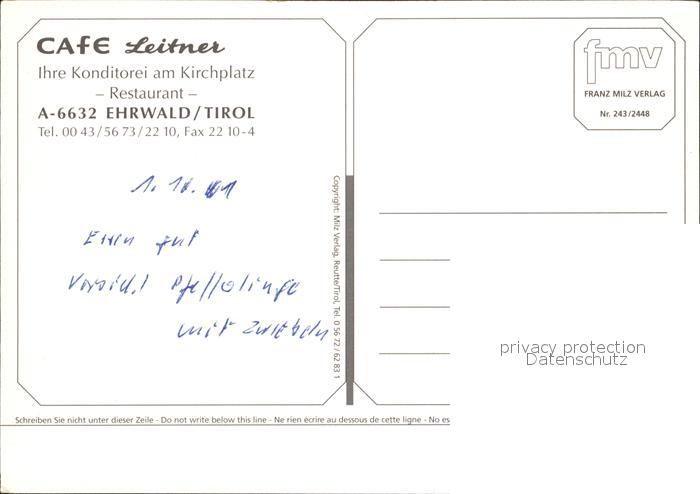 CAFE Leitner
Ihre Konditorei am Kirchplatz
– Restaurant –
A-6632 EHRWALD/TIROL
Tel. 00 43/56 73/22 10, Fax 22 10-4
1. 10.
Essen gut
Vorsicht Pfefferlinge
mit Zwiebeln
Copyright: Milz Verlag, Reutte/Tirol, Tel. 0 56 72/62 83 1
fmv
FRANZ MILZ VERLAG
Nr. 243/2448
privacy protection
Datenschutz
Schreiben Sie nicht unter dieser Zeile - Do not write below this line - Ne rien écrire au dessous de cette ligne - No es